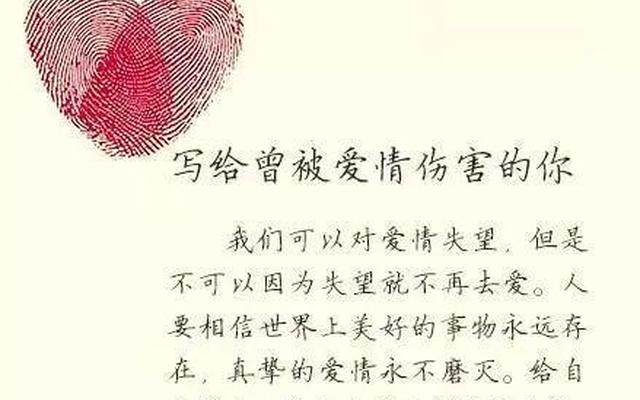 写给曾被爱情伤害的你
我们可以对爱情失望，但是
不可以因为失望就不再去爱。人
要相信世界上美好的事物永远存
在，真挚的爱情永不磨灭。给自